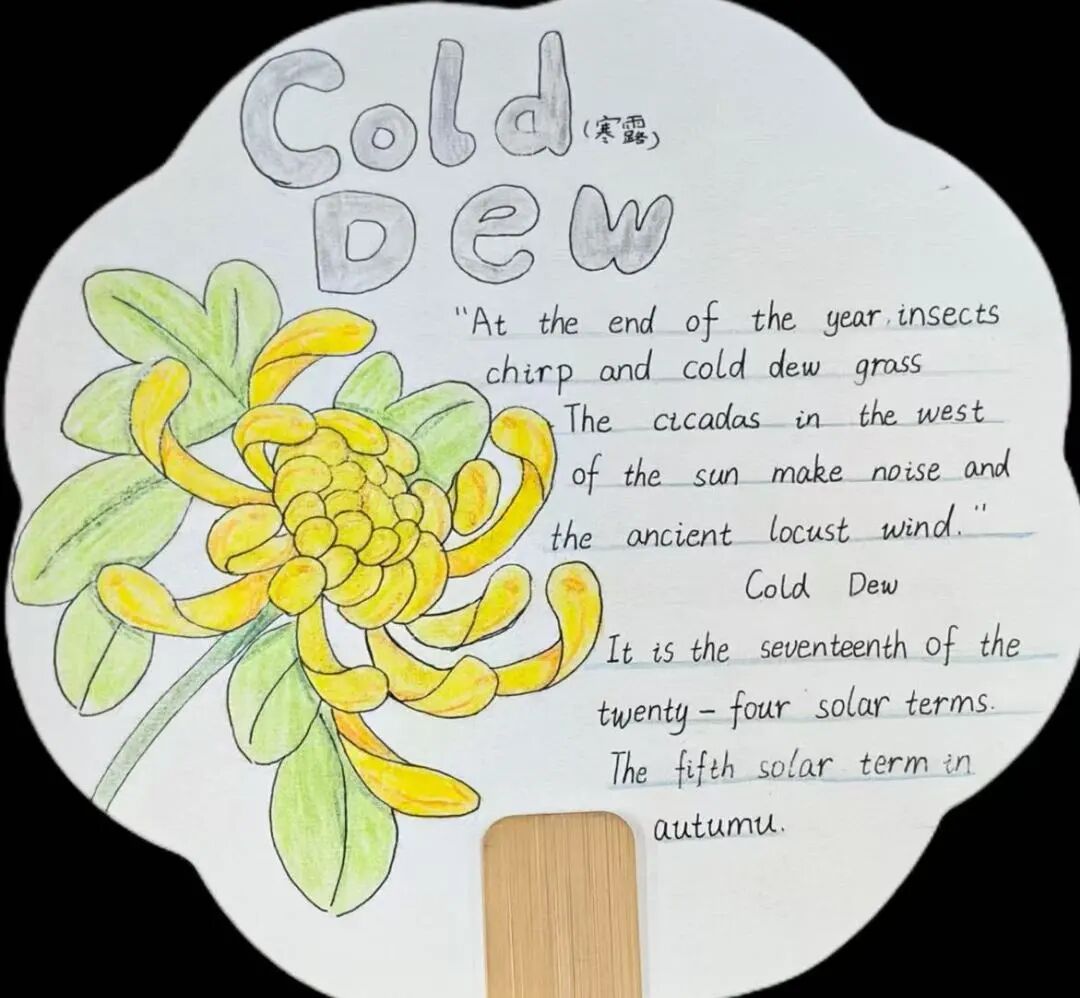 Cold (寒露)
Dew
"At the end of the year, insects
chirp and cold dew grass
The cicadas in the west
of the sun make noise and
the ancient locust wind."
Cold Dew
It is the seventeenth of the
twenty-four solar terms.
The fifth solar term in
autumu.